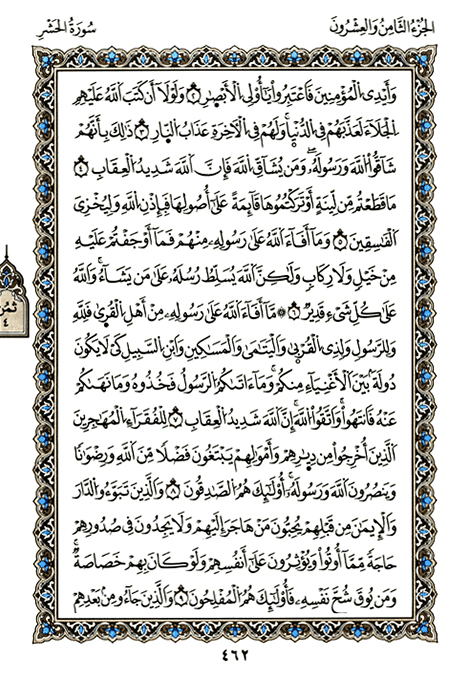 الجزء الثامن والعشرون
سورة الحشر
وَأَيْدِى الْمُؤْمِنِينَ فَاعْتَبِرُوا يَـٰٓأُو۟لِى الْأَبْصَـٰرِ ۝٢ وَلَوْلَآ أَن كَتَبَ اللَّهُ عَلَيْهِمُ
الْجَلَآءَ لَعَذَّبَهُمْ فِى الدُّنْيَا وَلَهُمْ فِى الْآخِرَةِ عَذَابُ النَّارِ ۝٣ ذَٰلِكَ بِأَنَّهُمْ
شَآقُّوا اللَّهَ وَرَسُولَهُۥ وَمَن يُشَآقِّ اللَّهَ فَإِنَّ اللَّهَ شَدِيدُ الْعِقَابِ ۝٤
مَا قَطَعْتُم مِّن لِّينَةٍ أَوْ تَرَكْتُمُوهَا قَآئِمَةً عَلَىٰٓ أُصُولِهَا فَبِإِذْنِ اللَّهِ وَلِيُخْزِىَ
الْفَـٰسِقِينَ ۝٥ وَمَآ أَفَآءَ اللَّهُ عَلَىٰ رَسُولِهِۦ مِنْهُمْ فَمَآ أَوْجَفْتُمْ عَلَيْهِ
مِنْ خَيْلٍ وَلَا رِكَابٍ وَلَـٰكِنَّ اللَّهَ يُسَلِّطُ رُسُلَهُۥ عَلَىٰ مَن يَشَآءُ وَاللَّهُ
عَلَىٰ كُلِّ شَىْءٍ قَدِيرٌ ۝٦ ۞ مَّآ أَفَآءَ اللَّهُ عَلَىٰ رَسُولِهِۦ مِنْ أَهْلِ الْقُرَىٰ فَلِلَّهِ
وَلِلرَّسُولِ وَلِذِى الْقُرْبَىٰ وَالْيَتَـٰمَىٰ وَالْمَسَـٰكِينِ وَابْنِ السَّبِيلِ كَىْ لَا يَكُونَ
دُولَةًۢ بَيْنَ الْأَغْنِيَآءِ مِنكُمْ وَمَآ ءَاتَىٰكُمُ الرَّسُولُ فَخُذُوهُ وَمَا نَهَىٰكُمْ
عَنْهُ فَانتَهُوا وَاتَّقُوا اللَّهَ إِنَّ اللَّهَ شَدِيدُ الْعِقَابِ ۝٧ لِلْفُقَرَآءِ الْمُهَـٰجِرِينَ
الَّذِينَ أُخْرِجُوا مِن دِيَـٰرِهِمْ وَأَمْوَٰلِهِمْ يَبْتَغُونَ فَضْلًا مِّنَ اللَّهِ وَرِضْوَٰنًا
وَيَنصُرُونَ اللَّهَ وَرَسُولَهُۥٓ أُو۟لَـٰٓئِكَ هُمُ الصَّـٰدِقُونَ ۝٨ وَالَّذِينَ تَبَوَّءُو الدَّارَ
وَالْإِيمَـٰنَ مِن قَبْلِهِمْ يُحِبُّونَ مَنْ هَاجَرَ إِلَيْهِمْ وَلَا يَجِدُونَ فِى صُدُورِهِمْ
حَاجَةً مِّمَّآ أُوتُوا وَيُؤْثِرُونَ عَلَىٰٓ أَنفُسِهِمْ وَلَوْ كَانَ بِهِمْ خَصَاصَةٌ
وَمَن يُوقَ شُحَّ نَفْسِهِۦ فَأُو۟لَـٰٓئِكَ هُمُ الْمُفْلِحُونَ ۝٩ وَالَّذِينَ جَآءُو مِنۢ بَعْدِهِمْ
ثمن
٤
٤٦٢